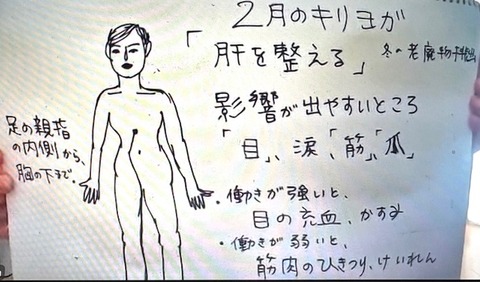 2月のキリヨガ
「肝を整える」 冬の老廃物排出
影響が出やすいところ
「目」、涙、「筋」、「爪」
足の親指
の内側から、
胸の下まで。
・働きが強いと、
目の充血、かすみ
・働きが弱いと、
筋肉のひきつり、けいれん